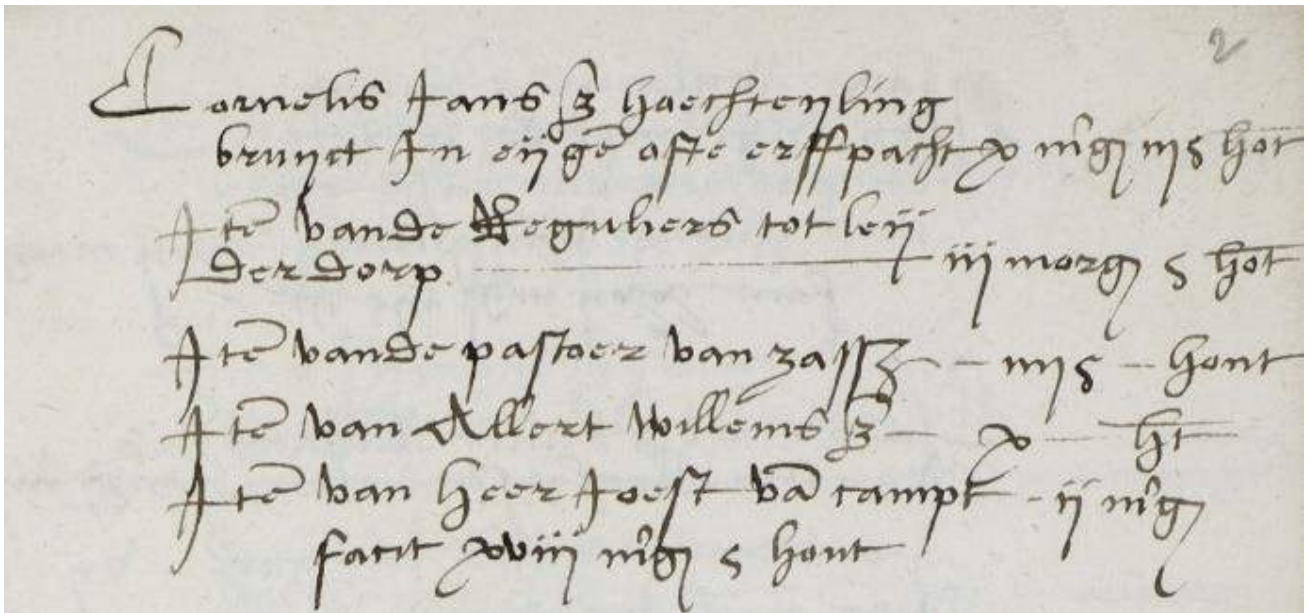 2
Cornelis Jans z haechtenling
bruyct In eijgē ofte erffpacht x m'g iijς hot
Itē vande Reguliers tot leij
derdorp iij morg ς hot
Itē vande pastoer van zassz iijς hont
Itē van Allert Willems z x ht
Itē van heer Joest vā campt ij m'g
facit xviij m'g ς hont